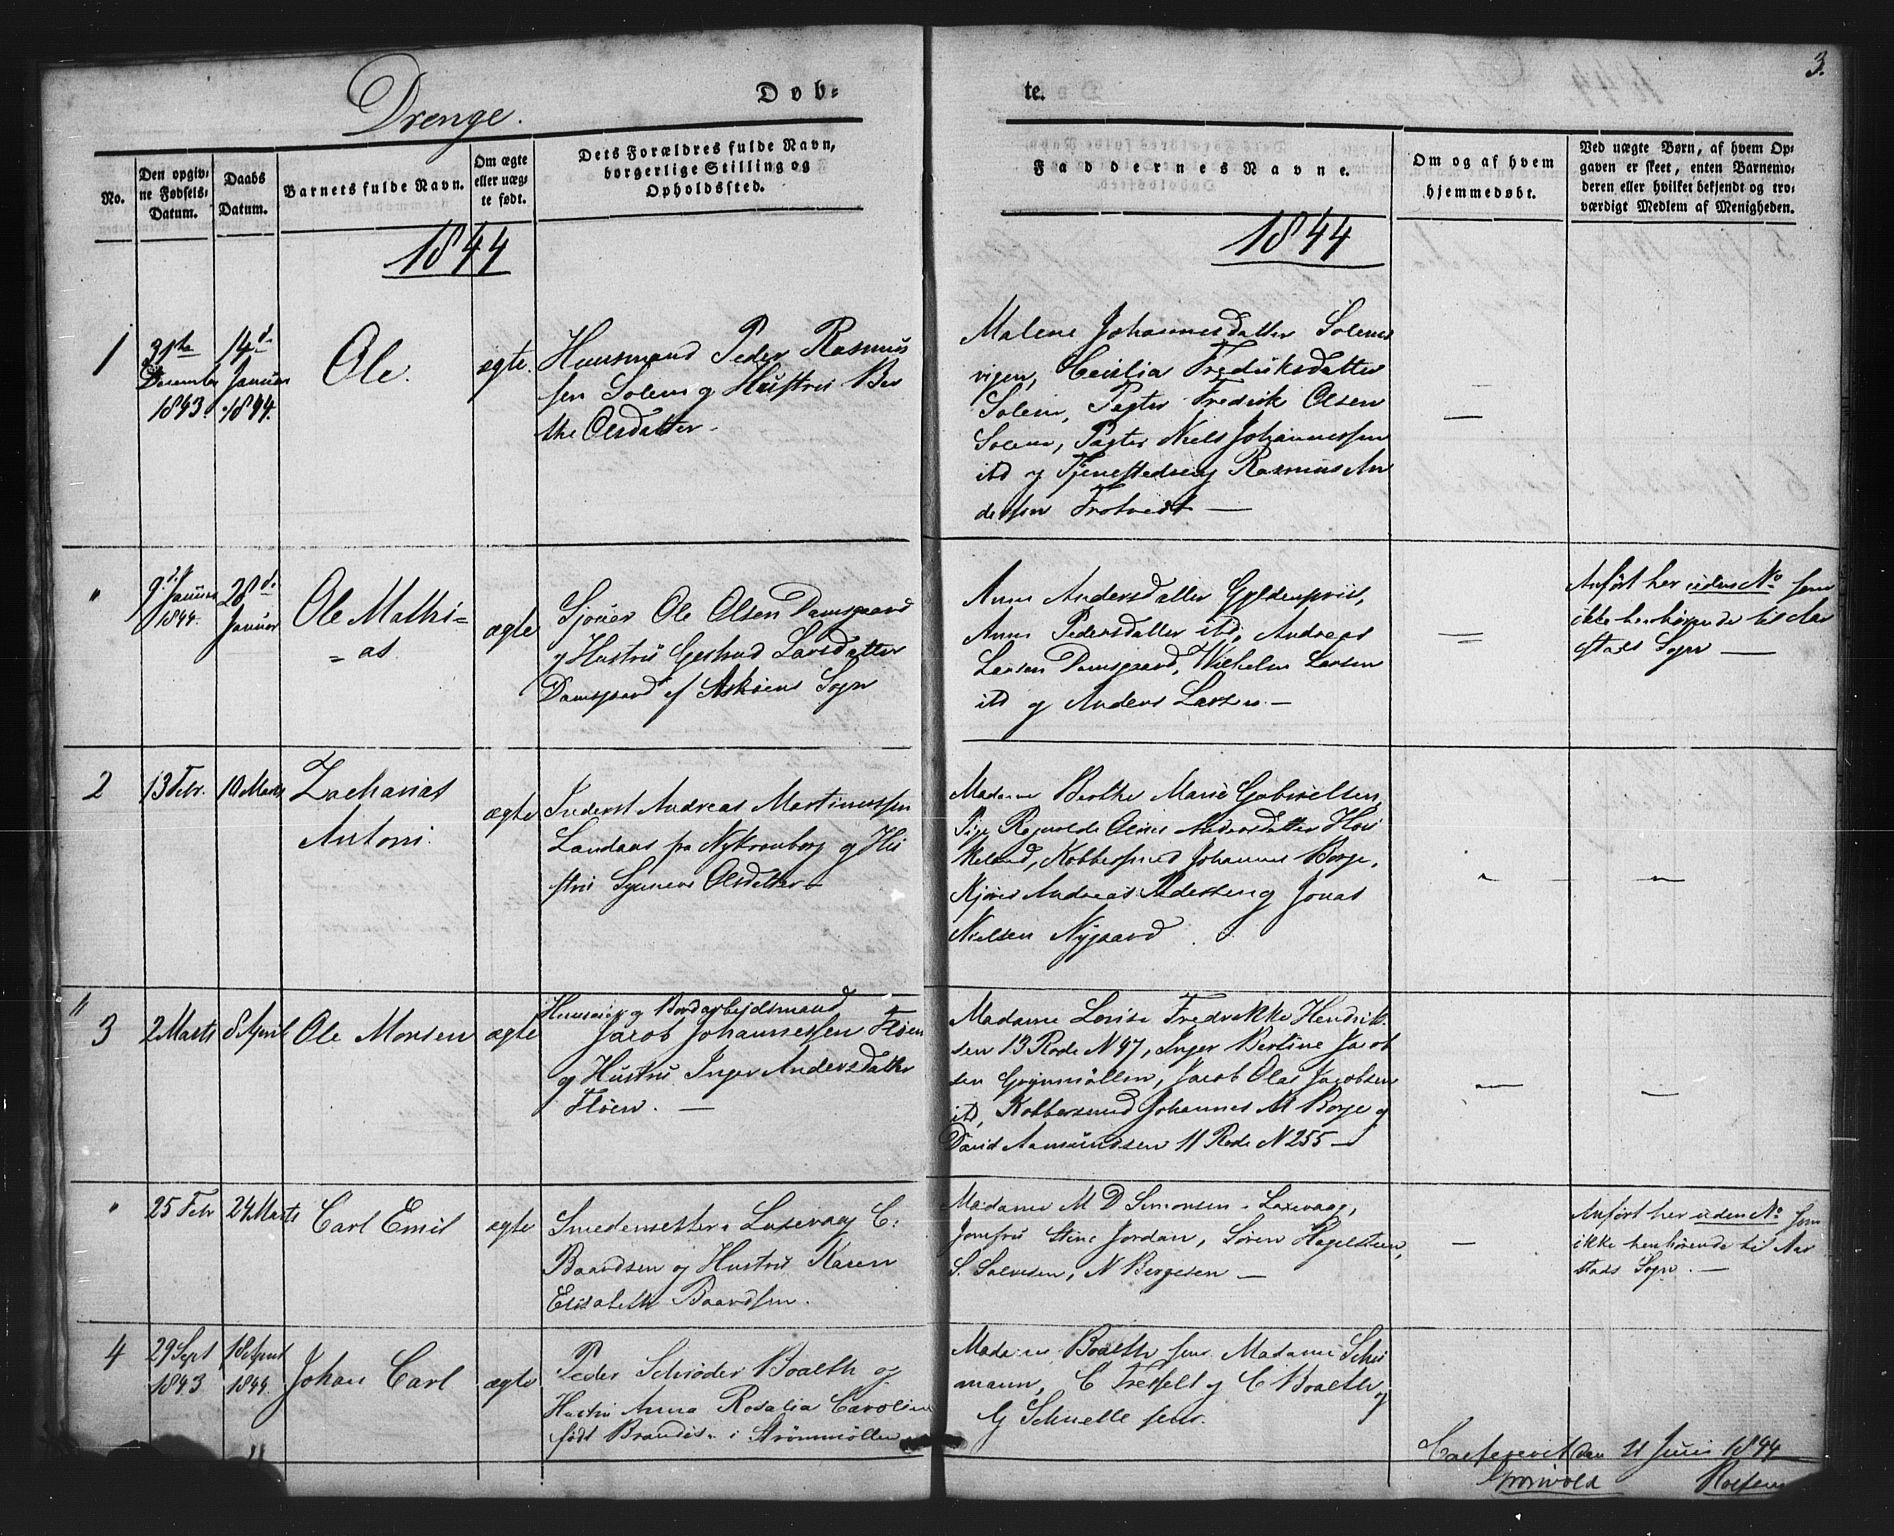 3.
Drenge.
Døb=
te.
No.
Den opgiv-
ne Fødsels-
Datum.
Daabs
Datum.
Barnets fulde Navn.
Om ægte
eller uæg-
te født.
Dets Forældres fulde Navn,
borgerlige Stilling og
Opholdssted.
Faddernes Navne.
Om og af hvem
hjemmedøbt.
Ved uægte Børn, af hvem Op-
gaven er skeet, enten Barnemo-
deren eller hvilket bekjendt og tro-
værdigt Medlem af Menigheden.
1844
1844
1
31te
December
1843.
14d
Januar
1844.
Ole.
ægte.
Huusmand Peder Rasmus
sen Solem og Hustru Ber
the Olsdatter.
Malene Johannesdatter Solems
vigen, Cecilia Fredriksdatter
Solem, Pagter Fredrik Olsen
Solem, Pagter Niels Johannessen
itd og Tjenestedreng Rasmus An
dersen Frotvedt —
—
"
9d
Januar
1844.
28d
Januar
Ole Mathi=
=as.
ægte
Sjouer Ole Olsen Damsgaard
og Hustru Gertrud Larsdatter
Damsgaard af Askøens Sogn
Anne Andersdatter Gyldenpriis,
Anne Pedersdatter itd, Andreas
Larsen Damsgaard, Wilhelm Larsen
itd og Anders Larsen. —
=
Anført her uden No som
ikke henhørende til Aar
stads Sogn —
2
13 Febr.
10 Marts
Zacharias
Antoni.
ægte
Inderst Andreas Martinussen
Landaas fra Nykronborg og Hu
stru Synneve Olsdatter —
Madame Berthe Marie Gabrielsen,
Pige Ragnolde Oline Andersdatter Hau
keland, Kobbersmed Johannes Borge,
Andreas Pedersen og Jonas
Nielsen Nygaard.
"
3
2 Marts
8 April
Ole Monsen
ægte
Huuseier og Bordarbejdsmand
Jacob Johannessen Fløen
og Hustru Inger Andersdatter
Fløen. —
Madame Lovise Fredrikke Hendrik
sen 13 Rode N 47, Inger Bertine Jacob
sen Grynmøllen, Jacob Olai Jacobsen
itd, Kobbersmed Johannes M Borge og
David Aamundssen 11 Rode N 255 —
—
"
25 Febr
24 Marts
Carl Emil
ægte
Smedemester i Laxevaag C.
Baardsen og Hustru Karen
Elisabeth Baardsen.
Madame M D Simonsen i Laxevaag,
Jomfru Stine Jordan, Søren Hagelsteen,
S. Salvesen, N Bergesen —
—
Anført her uden No som
ikke henhørende til Aar
stads Sogn. —
4
29 Sept
1843
18 April
1844.
Johan Carl
ægte
Peder Schrøder Boalth og
Hustru Anna Rosalia Carolin
født Brandis i Strømmøllen
Madame Boalth sen Madame Schu
mann, C Tresselt og C Boalth og
G Schnelle senr.
Confereret den 21 Juni 1844